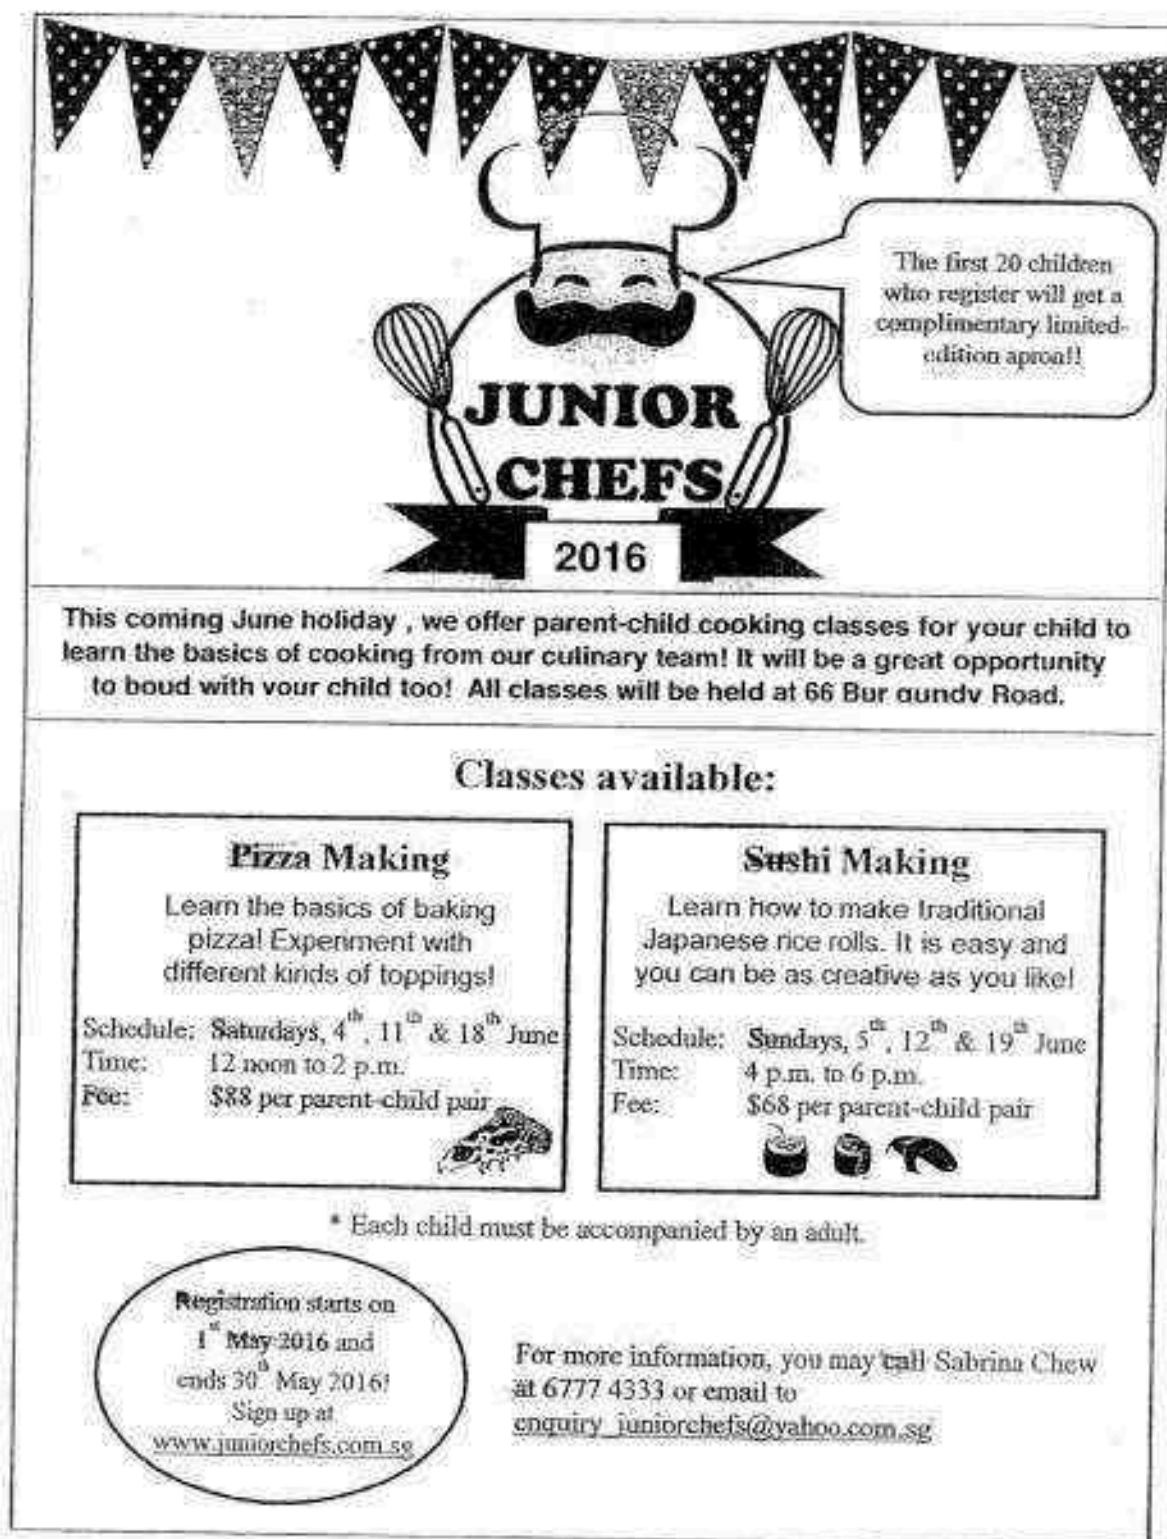 The first 20 children
who register will get a
complimentary limited-
edition apron!!
JUNIOR
CHEFS
2016
This coming June holiday , we offer parent-child cooking classes for your child to
learn the basics of cooking from our culinary team! It will be a great opportunity
to boud with your child too! All classes will be held at 66 Bur gundy Road.
Classes available:
Pizza Making
Learn the basics of baking
pizza! Experiment with
different kinds of toppings!
Schedule: Saturdays, 4th, 11th & 18th June
Time: 12 noon to 2 p.m.
Fee: $88 per parent-child pair
Sushi Making
Learn how to make traditional
Japanese rice rolls. It is easy and
you can be as creative as you like!
Schedule: Sundays, 5th, 12th & 19th June
Time: 4 p.m. to 6 p.m.
Fee: $68 per parent-child pair
* Each child must be accompanied by an adult.
Registration starts on
1st May 2016 and
ends 30th May 2016!
Sign up at
www.juniorchefs.com.sg
For more information, you may call Sabrina Chew
at 6777 4333 or email to
enquiry_juniorchefs@yahoo.com.sg